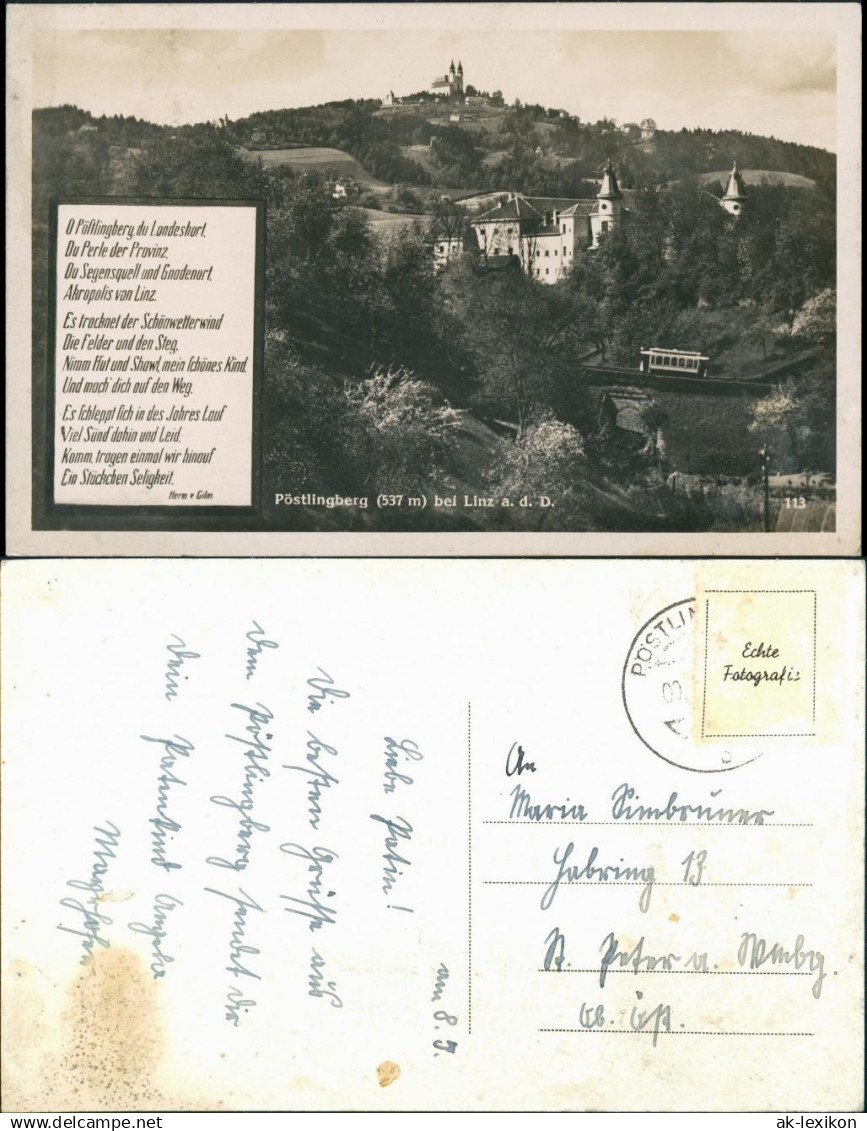 O Pöstlingberg, du Landeshort,
Du Perle der Provinz,
Du Segensquell und Gnadenort,
Akropolis von Linz.
Es trocknet der Schönwetterwind
Die Felder und den Steg,
Nimm Hut und Shawl, mein schönes Kind,
Und mach' dich auf den Weg.
Es schleppt sich in des Jahres Lauf
Viel Sünd' dahin und Leid.
Komm, tragen einmal wir hinauf
Ein Stückchen Seligkeit.
Herm. v. Gilm
Pöstlingberg (537 m) bei Linz a. d. D.
113
Echte
Fotografie
PÖSTLIN
8
An
Maria Simbrunner
Habring 13
St. Peter a. Wmbg.
Ob. Öst.
am 8. 5.
Liebe Patin!
Die besten Grüsse aus
dem Pöstlingberg sendet dir
dein Patenkind Angela
Mayrhofer
www.delcampe.net
ak-lexikon